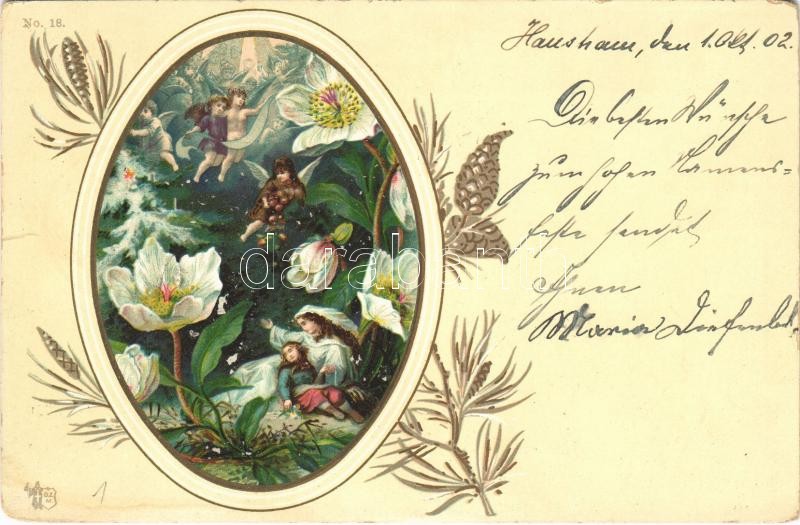 No. 18.
Hausham, den 1. Okt. 02.
Die besten Wünsche
zum hohen Namens-
feste sendet
Ihnen
Maria
darabanth